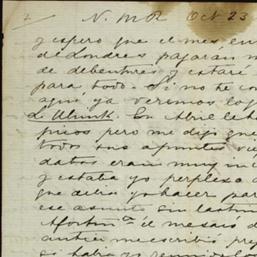 2 N. M R Oct 23
y espero que el mes en
de Londres pagarán
de debentures y estaré
para, todo. Si no te co
aquí ya veremos lo q
L. Ubink. En Abril le
pesos pero me dijo q
todos sus apuntes
datos eran muy in
y estaba yo perplexo
que debia yo hacer par
ese asunto sin lastim
el mes de
antier me escribió
si habia